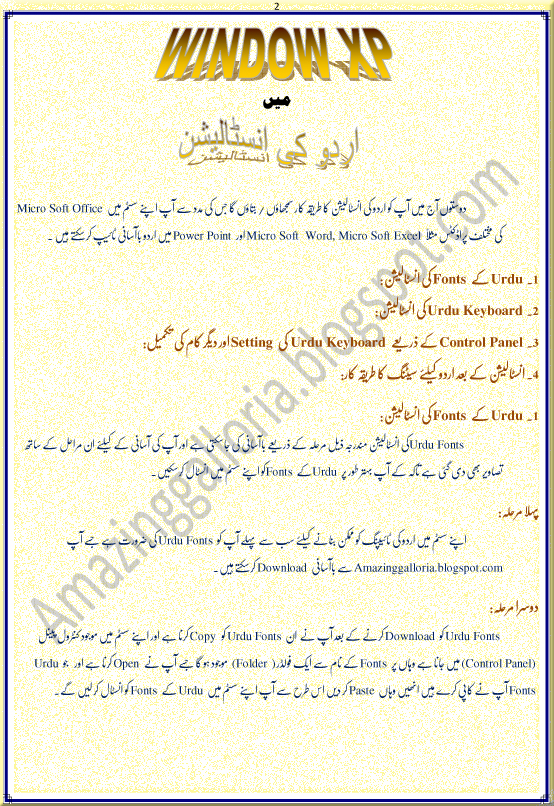 2
WINDOW XP
میں
اردو کی انسٹالیشن
دوستوں آج میں آپ کو اردو کی انسٹالیشن کا طریقہ کار سمجھاؤں / بتاؤں گا جس کی مدد سے آپ اپنے سسٹم میں Micro Soft Office
کی مختلف پراڈکٹس مثلاً Micro Soft Word, Micro Soft Excel اور Power Point میں اردو باآسانی ٹائیپ کر سکتے ہیں ۔
1۔ Urdu کے Fonts کی انسٹالیشن:
2۔ Urdu Keyboard کی انسٹالیشن:
3۔ Control Panel کے ذریعے Urdu Keyboard کی Setting اور دیگر کام کی تکمیل:
4۔ انسٹالیشن کے بعد اردو کیلئے سیٹنگ کا طریقہ کار:
1۔ Urdu کے Fonts کی انسٹالیشن:
Urdu Fonts کی انسٹالیشن مندرجہ ذیل مرحلہ کے ذریعے باآسانی کی جاسکتی ہے اور آپ کی آسانی کے کیلئے ان مراحل کے ساتھ
تصاویر بھی دی گئی ہے تاکہ کے آپ بہتر طور پر Urdu کے Fonts کو اپنے سسٹم میں انسٹال کر سکیں۔
پہلا مرحلہ:
اپنے سسٹم میں اردو کی ٹائیپنگ کو ممکن بنانے کیلئے سب سے پہلے آپ کو Urdu Fonts کی ضرورت ہے جسے آپ
Amazinggalloria.blogspot.com سے باآسانی Download کر سکتے ہیں۔
دوسرا مرحلہ:
Urdu Fonts کو Download کرنے کے بعد آپ نے ان Urdu Fonts کو Copy کرنا ہے اور اپنے سسٹم میں موجود کنٹرول پینل
(Control Panel) میں جانا ہے وہاں پر Fonts کے نام سے ایک فولڈر (Folder) موجود ہو گا جسے آپ نے Open کرنا ہے اور جو Urdu
Fonts آپ نے کاپی کرے ہیں انھیں وہاں Paste کر دیں اس طرح سے آپ اپنے سسٹم میں Urdu کے Fonts کو انسٹال کر لیں گے۔
Amazinggalloria.blogspot.com